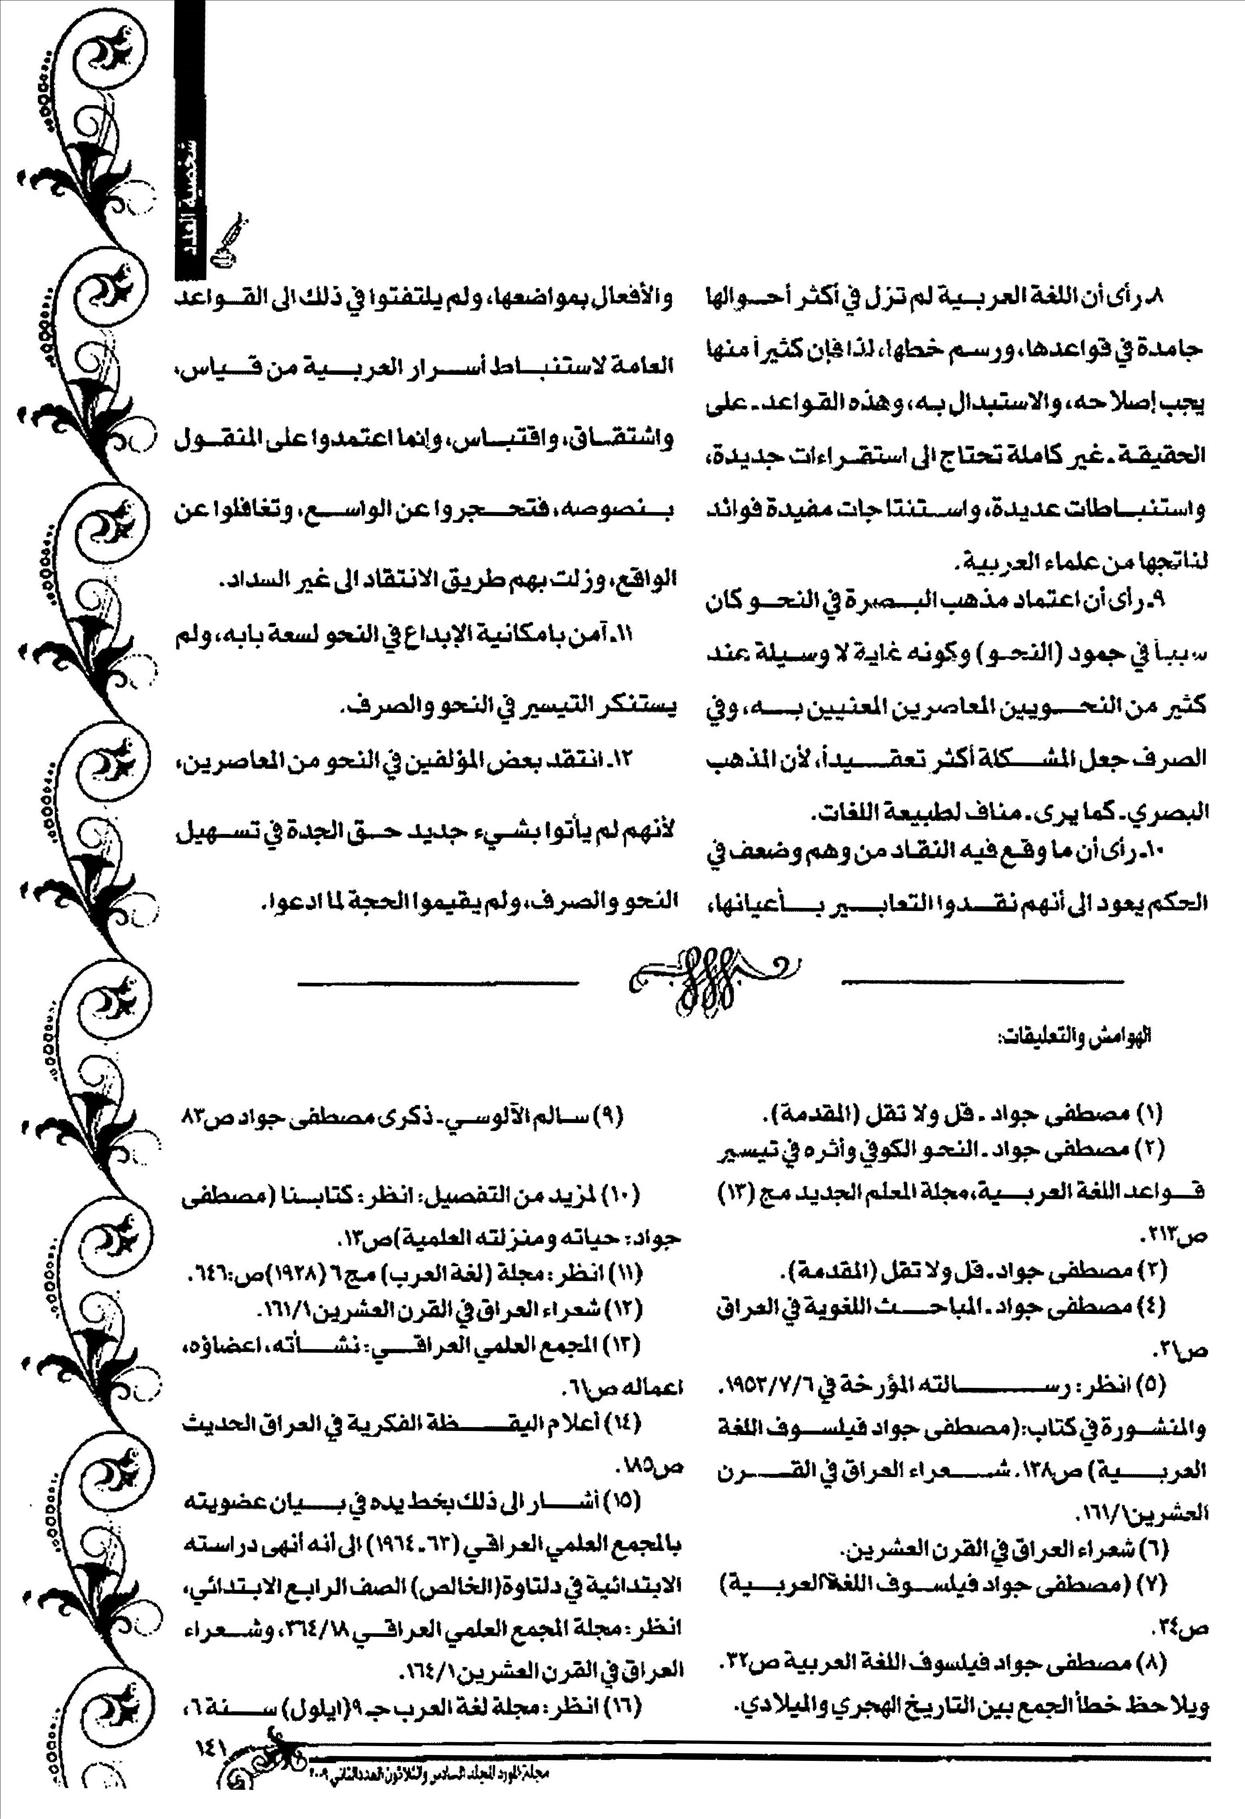 شخصية العدد
٨ـ رأى أن اللغة العربية لم تزل في أكثر أحوالها
جامدة في قواعدها، ورسم خطها، لذا فإن كثيراً منها
يجب إصلاحه، والاستبدال به، وهذه القواعد ـ على
الحقيقة ـ غير كاملة تحتاج الى استقراءات جديدة،
واستنباطات عديدة، واستنتاجات مفيدة فوائد
لناتجها من علماء العربية.
٩ـ رأى أن اعتماد مذهب البصرة في النحو كان
سبباً في جمود (النحو) وكونه غاية لا وسيلة عند
كثير من النحويين المعاصرين المعنيين به، وفي
الصرف جعل المشكلة أكثر تعقيداً، لأن المذهب
البصري ـ كما يرى ـ مناف لطبيعة اللغات.
١٠ـ رأى أن ما وقع فيه النقاد من وهم وضعف في
الحكم يعود الى أنهم نقدوا التعابير بأعيانها،
والأفعال بمواضعها، ولم يلتفتوا في ذلك الى القواعد
العامة لاستنباط أسرار العربية من قياس،
واشتقاق، واقتباس، وإنما اعتمدوا على المنقول
بنصوصه، فتحجروا عن الواسع، وتغافلوا عن
الواقع، وزلت بهم طريق الانتقاد الى غير السداد.
١١ـ آمن بامكانية الإبداع في النحو لسعة بابه، ولم
يستنكر التيسير في النحو والصرف.
١٢ـ انتقد بعض المؤلفين في النحو من المعاصرين،
لأنهم لم يأتوا بشيء جديد حق الجدة في تسهيل
النحو والصرف، ولم يقيموا الحجة لما ادعوا.
الهوامش والتعليقات:
(١) مصطفى جواد ـ قل ولا تقل (المقدمة).
(٢) مصطفى جواد ـ النحو الكوفي وأثره في تيسير
قواعد اللغة العربية، مجلة المعلم الجديد مج (١٣)
ص٢١٣.
(٣) مصطفى جواد ـ قل ولا تقل (المقدمة).
(٤) مصطفى جواد ـ المباحث اللغوية في العراق
ص٣١.
(٥) انظر: رسالته المؤرخة في ١٩٥٣/٧/٦.
والمنشورة في كتاب: (مصطفى جواد فيلسوف اللغة
العربية) ص١٣٨. شعراء العراق في القرن
العشرين١٦١/١.
(٦) شعراء العراق في القرن العشرين.
(٧) (مصطفى جواد فيلسوف اللغة العربية)
ص٣٤.
(٨) مصطفى جواد فيلسوف اللغة العربية ص٣٢.
ويلاحظ خطأ الجمع بين التاريخ الهجري والميلادي.
(٩) سالم الآلوسي ـ ذكرى مصطفى جواد ص٨٣
(١٠) لمزيد من التفصيل: انظر: كتابنا (مصطفى
جواد: حياته ومنزلته العلمية) ص١٣.
(١١) انظر: مجلة (لغة العرب) مج٦ (١٩٢٨) ص:٦٤٦.
(١٢) شعراء العراق في القرن العشرين١٦١/١.
(١٣) المجمع العلمي العراقي: نشأته، اعضاؤه،
اعماله ص٦١.
(١٤) أعلام اليقظة الفكرية في العراق الحديث
ص١٨٥.
(١٥) أشار الى ذلك بخط يده في بيان عضويته
بالمجمع العلمي العراقي (٦٣ـ ١٩٦٤) الى أنه أنهى دراسته
الابتدائية في دلتاوة (الخالص) الصف الرابع الابتدائي،
انظر: مجلة المجمع العلمي العراقي ٣٦٤/١٨، وشعراء
العراق في القرن العشرين١٦٤/١.
(١٦) انظر: مجلة لغة العرب جـ٩ (ايلول) سنة ٦،
١٤١
مجلة المورد المجلد السادس والثلاثون العدد الثاني ٢٠٠٩